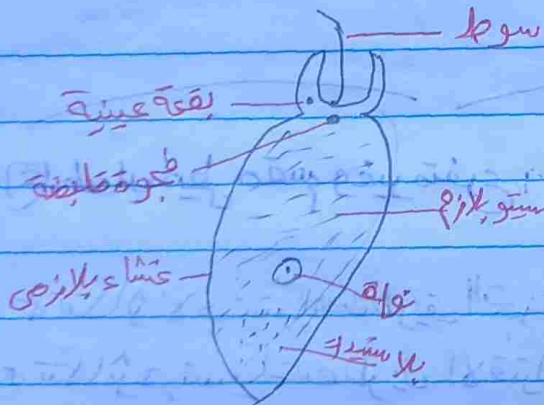 سوط
بقعة عينية
فجوة قابضة
سيتوبلازم
غشاء بلازمي
نواة
بلاستيدات